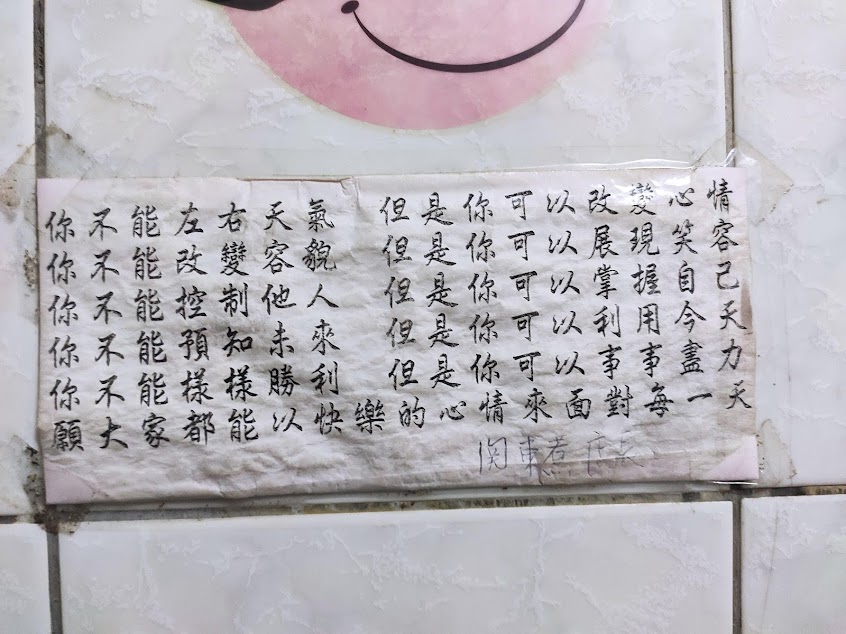 你不能左右天氣 但是你可以改變心情
你不能改變容貌 但是你可以展現笑容
你不能控制他人 但是你可以掌握自己
你不能預知未來 但是你可以利用今天
你不能樣樣勝利 但是你可以事事盡力
願大家都能以快樂的心情來面對每一天
関東煮